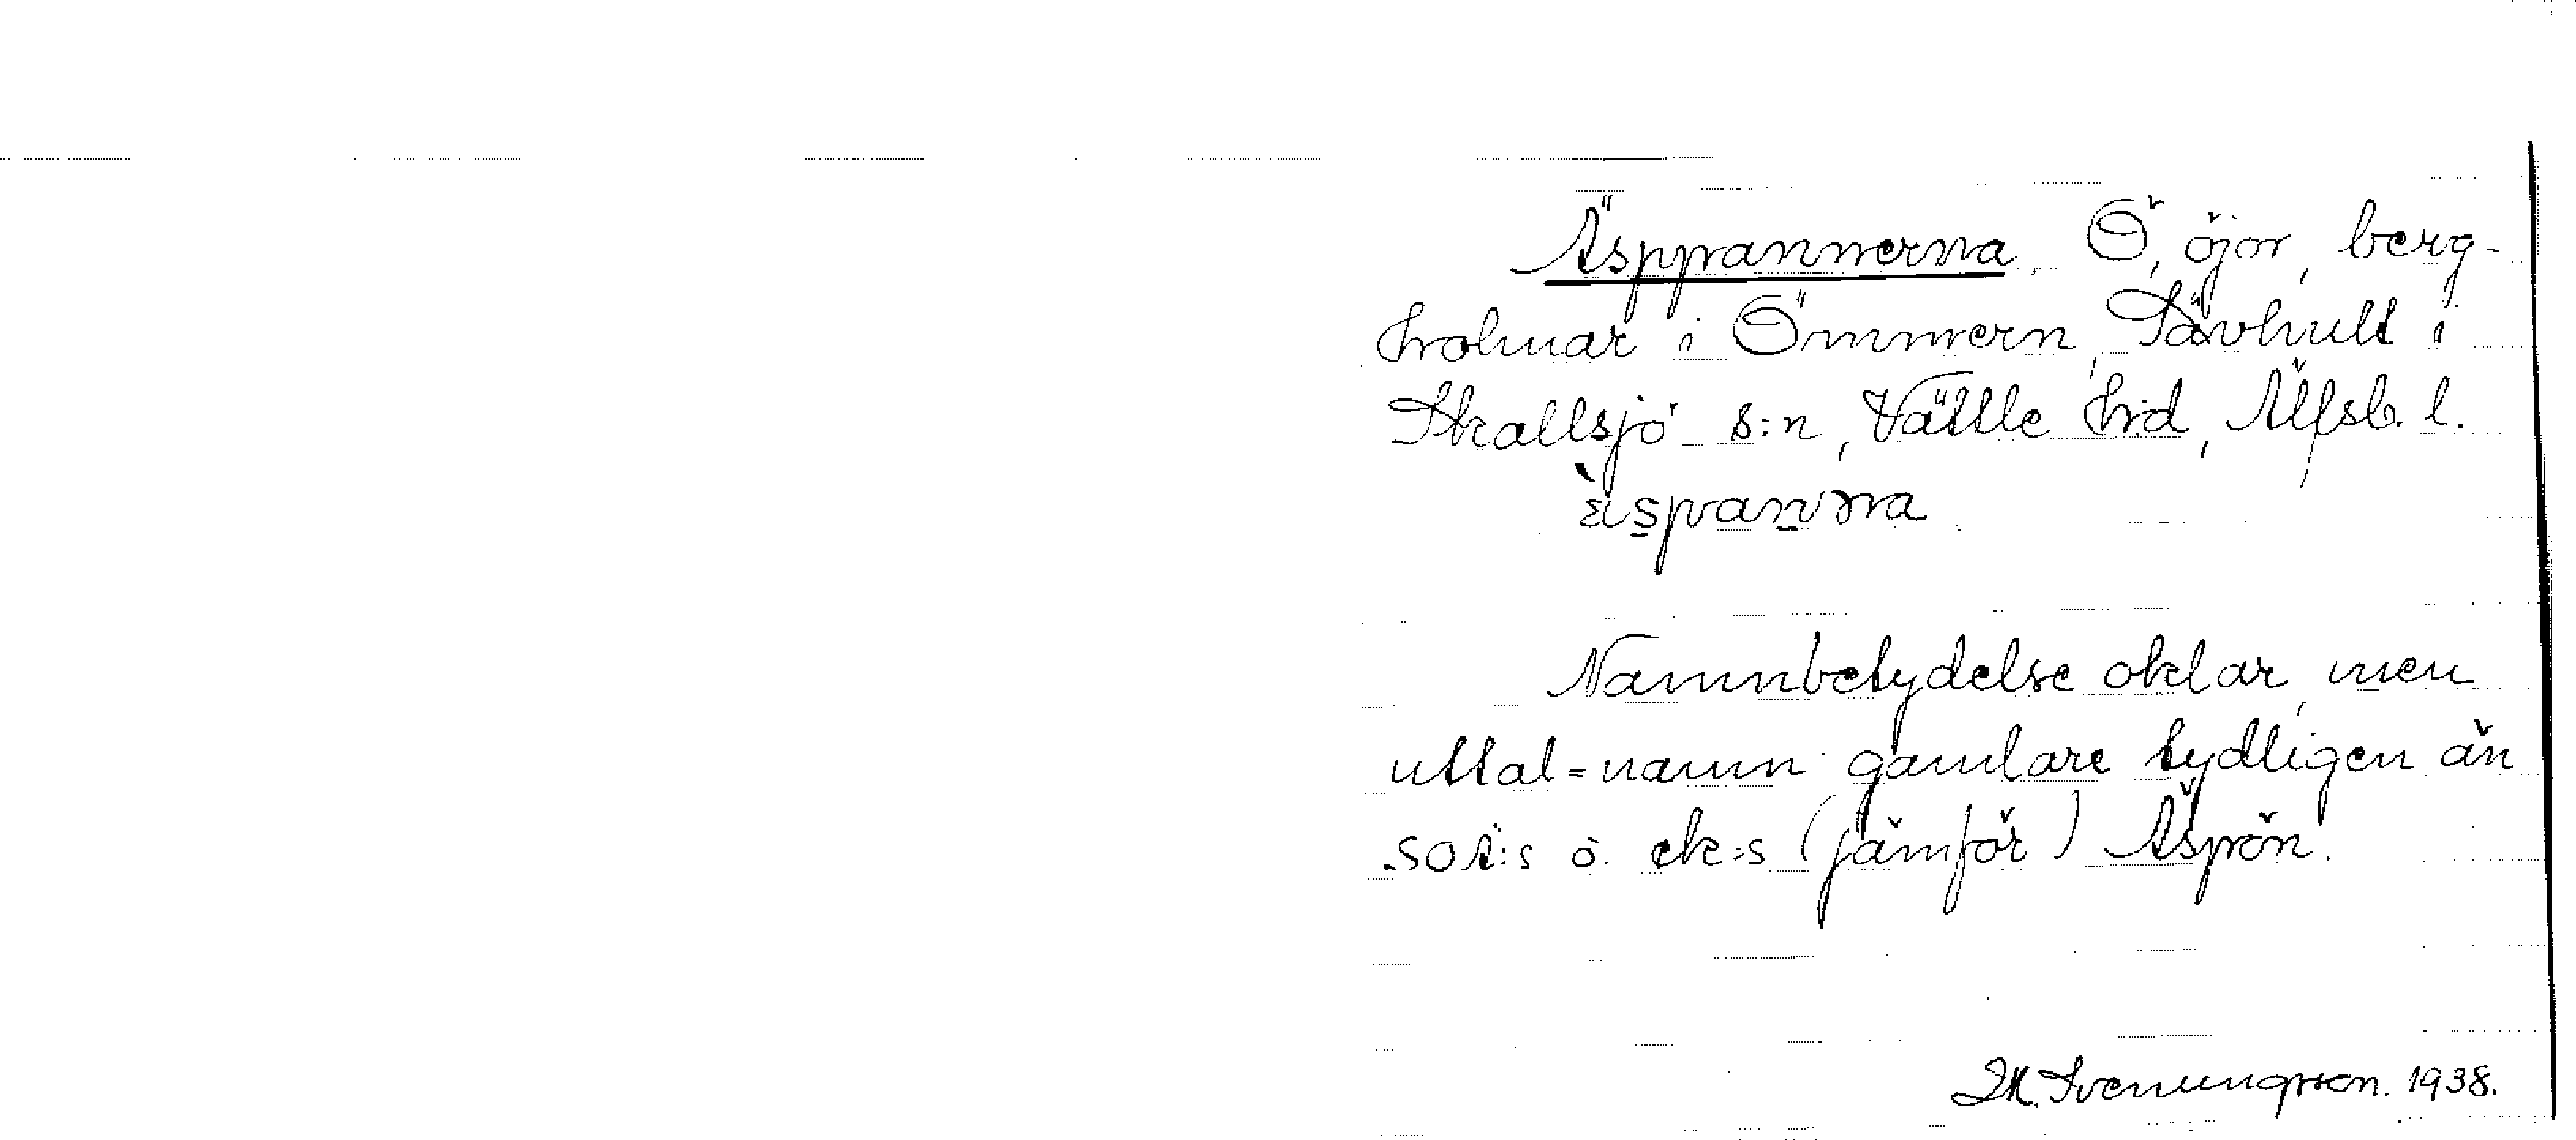 Äsppannerna. Ö, öjor, berg-
holmar i Ömmern, Sävhult i
Skallsjö s:n, Vättle hd, Älfsb. l.
äspanna
Namnbetydelse oklar, men
uttal=namn gamlare tydligen än
sot:s o. ek:s (jämför) Äspön.
M. Svenungsson. 1938.